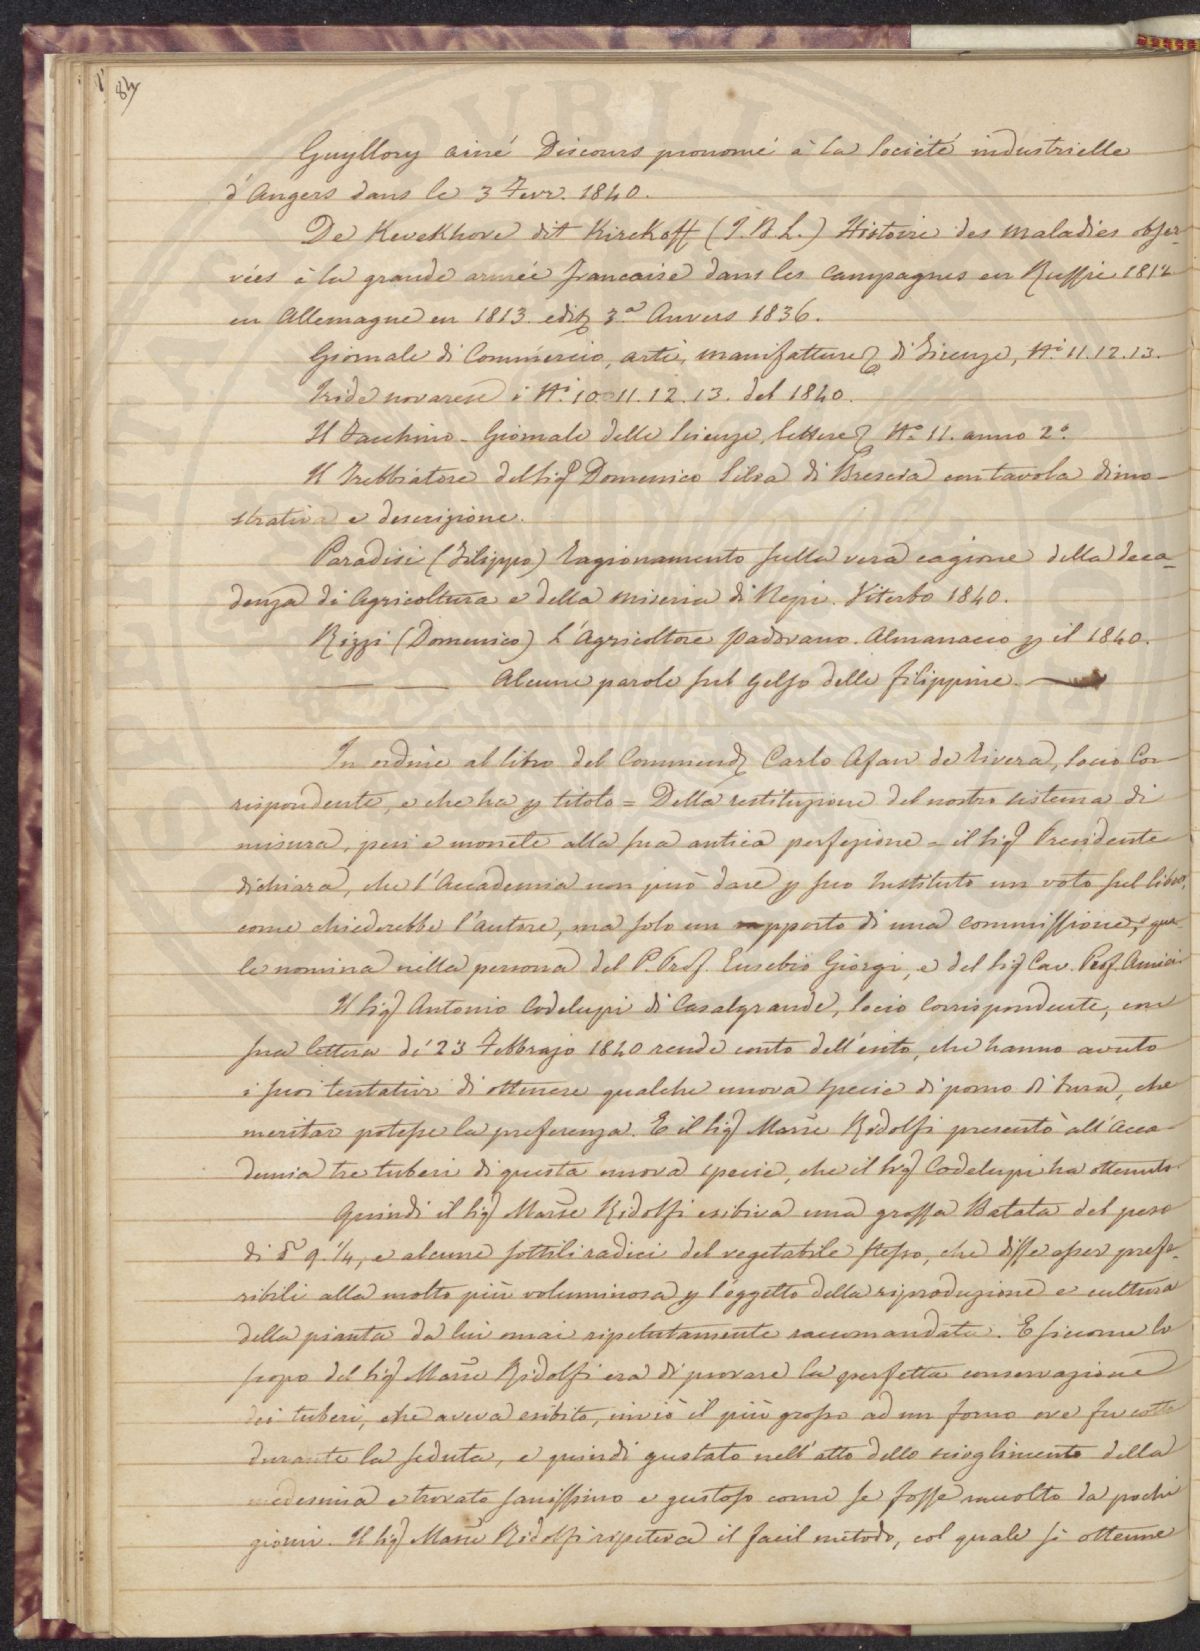 84
Guyllory ainé Discours prononcé à la Societé industrielle
d'Angers dans le 3 Fevr. 1840.
De Kerckhove dit Kirckoff (J.R.L.) Histoire des maladies obser-
vées à la grande armée francaise dans les campagnes en Russie 1812
en Allemagne en 1813. edit. 3.a Anvers 1836.
Giornale di Commercio, arti, manifatture di Firenze, N.i 11.12.13.
Iride novarese i N.i 10.11.12.13. del 1840.
Il Facchino - Giornale delle Scienze, lettere N.o 11. anno 2.o
Il Trebbiatore del Sig Domenico Silva di Brescia con tavola dimo-
strativa e descrizione.
Paradisi (Filippo) Ragionamento sulla vera cagione della deca-
denza di Agricoltura e della miseria di Nepi. Viterbo 1840.
Rizzi (Domenico) L'Agricoltore padovano. Almanacco p il 1840.
— — Alcune parole sul Gelso delle filippine.
In ordine al libro del Commend Carlo Afan de Rivera, Socio Cor-
rispondente, e che ha p titolo = Della restituzione del nostro sistema di
misura, pesi e monete alla sua antica perfezione = il Sig Presidente
dichiara, che l'Accademia non può dare p suo Instituto un voto sul libro,
come chiederebbe l'autore, ma solo un rapporto di una commissione, qua-
le nomina nella persona del P. Prof. Eusebio Giorgi, e del Sig Cav. Prof. Amici
Il Sig Antonio Codelupi di Casalgrande, Socio Corrispondente, con
sua lettera de' 23 Febbrajo 1840 rende conto dell'esito, che hanno avuto
i suoi tentativi di ottenere qualche nuova specie di pomo di terra, che
meritar potesse la preferenza. E il Sig March Ridolfi presentò all'Acca-
demia tre tuberi di questa nuova specie, che il Sig Codelupi ha ottenuto.
Quindi il Sig March Ridolfi esibiva una grossa Batata del peso
di 9 1/4, e alcune sottili radici del vegetabile stesso, che disse esser prefe-
ribili alla molto più voluminosa p l'oggetto della riproduzione e cultura
della pianta da lui omai ripetutamente raccomandata. E siccome lo
scopo del Sig March Ridolfi era di provare la perfetta conservazione
dei tuberi, che aveva esibito, inviò il più grosso ad un forno ove fu cotto
durante la seduta, e quindi gustato nell'atto dello scioglimento della
medesima e trovato sanissimo e gustoso come se fosse raccolto da pochi
giorni. Il Sig March Ridolfi ripeteva il facil metodo, col quale si ottenne